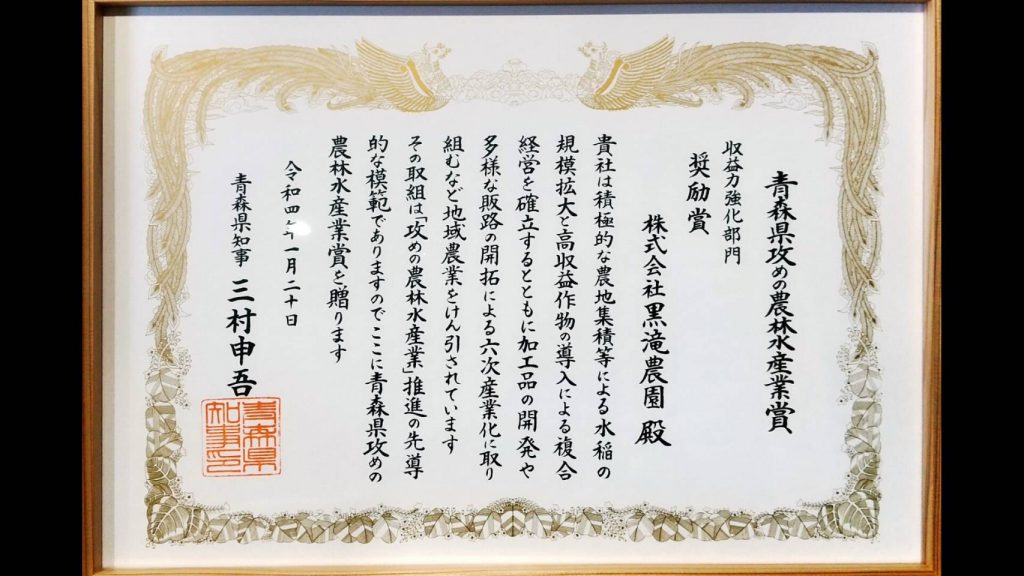 青森県攻めの農林水産業賞
収益力強化部門
奨励賞
株式会社黒滝農園 殿
貴社は積極的な農地集積等による水稲の
規模拡大と高収益作物の導入による複合
経営を確立するとともに加工品の開発や
多様な販路の開拓による六次産業化に取り
組むなど地域農業をけん引されています
その取組は「攻めの農林水産業」推進の先導
的な模範でありますのでここに青森県攻めの
農林水産業賞を贈ります
令和四年一月二十日
青森県知事 三村申吾
青森県
知事印